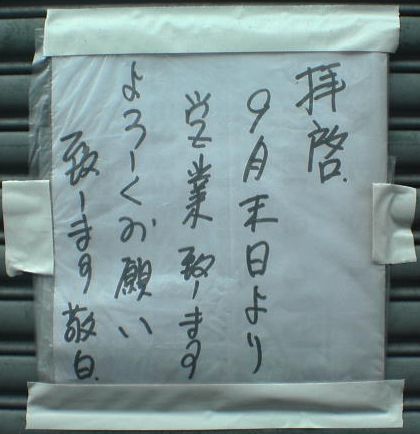 拝啓.
9月末日より
営業致します
よろしくお願い
致します敬白.